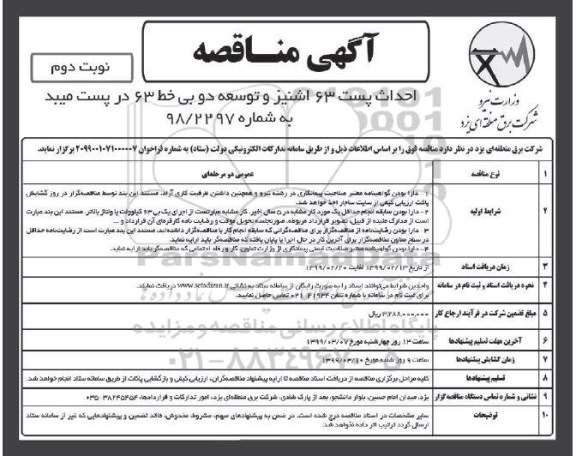 آگهی مناقصه
نوبت دوم
وزارت نیرو
شرکت برق منطقه‌ای یزد
احداث پست ۶۳ اشنیز و توسعه دو بی خط ۶۳ در پست میبد
به شماره ۹۸/۲۲۹۷
شرکت برق منطقه‌ای یزد در نظر دارد مناقصه فوق را بر اساس اطلاعات ذیل و از طریق سامانه تدارکات الکترونیکی دولت (ستاد) به شماره فراخوان ۲۰۹۹۰۰۱۰۷۱۰۰۰۰۰۷ برگزار نماید.
۱ نوع مناقصه عمومی دو مرحله‌ای
۲ شرایط اولیه
۱- دارا بودن گواهینامه معتبر صلاحیت پیمانکاری در رشته نیرو و همچنین داشتن ظرفیت کاری آزاد، مستند این بند توسط مناقصه‌گزار در روز گشایش
پاکت ارزیابی کیفی از سایت ساجار اخذ خواهد شد.
۲- دارا بودن سابقه انجام حداقل یک مورد کار مشابه در
۳- دارا بودن رضایت‌نامه از مناقصه‌گزار برای مناقصه‌گرانی که سابقه انجام کار با مناقصه‌گزار داشته‌اند، مستند این بند عبارت است از رضایت‌نامه حداقل
۴- دارا بودن گواهینامه معتبر صلاحیت ایمنی پیمانکاری از وزارت تعاون، کار و رفاه اجتماعی که مناقصه‌گر باید ارایه نماید.
۳ زمان دریافت اسناد از تاریخ ۱۳۹۹/۰۲/۱۳ لغایت ۱۳۹۹/۰۲/۲۰
۴ نحوه دریافت اسناد و ثبت نام در سامانه
واجدین شرایط می‌توانند اسناد را به صورت رایگان از سامانه ستاد به نشانی www.setadiran.ir دریافت نمایند.
برای ثبت نام در سامانه با شماره تلفن ۴۱۹۳۴-۰۲۱ تماس حاصل نمایید.
۵ مبلغ تضمین شرکت در فرآیند ارجاع کار ۳،۲۸۸،۰۰۰،۰۰۰ ریال
۶ آخرین مهلت تسلیم پیشنهادها ساعت ۱۳ روز چهارشنبه مورخ ۱۳۹۹/۰۳/۰۷
۷ زمان گشایش پیشنهادها ساعت ۹ روز شنبه مورخ ۱۳۹۹/۰۳/۱۰
۸ تسلیم پیشنهادها کلیه مراحل برگزاری مناقصه از دریافت اسناد مناقصه تا ارایه پیشنهاد مناقصه‌گران، ارزیابی کیفی و بازگشایی پاکات از طریق سامانه ستاد انجام خواهد شد.
۹ نشانی و شماره تماس دستگاه مناقصه گزار یزد، میدان امام حسین، بلوار دانشجو، بعد از پارک شادی، شرکت برق منطقه‌ای یزد، امور تدارکات و قراردادها، ۳۸۲۴۵۴۵۴-۰۳۵
۱۰ توضیحات
سایر مشخصات در اسناد مناقصه درج شده است. در ضمن به پیشنهادهای مبهم، مشروط، مخدوش، فاقد تضمین و پیشنهادهایی که غیر از سامانه ستاد
ارسال گردد ترتیب اثر داده نخواهد شد.
پایگاه اطلاع رسانی مناقصه و مزایده